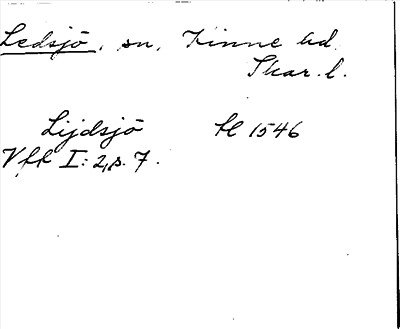 Ledsjö, sn, Kinne hd.
Skar. l.
Lijdsjö hl 1546
Vfh I: 2, s. 7.